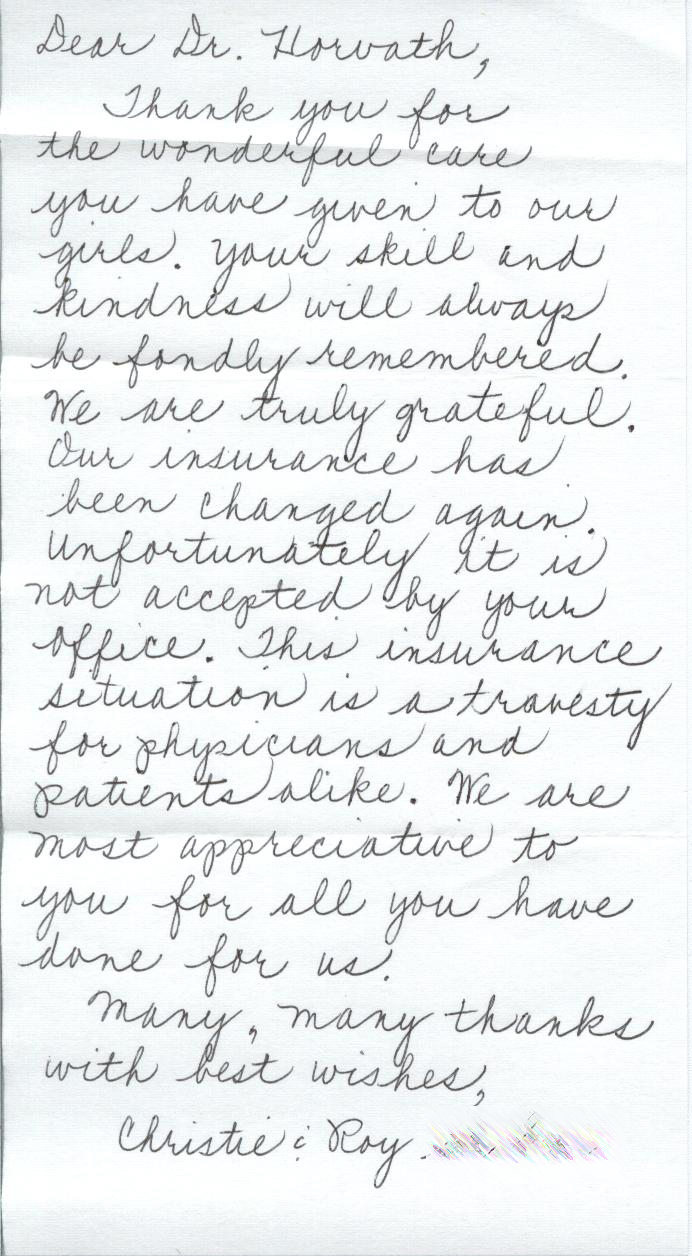 Dear Dr. Horvath,
Thank you for
the wonderful care
you have given to our
girls. Your skill and
kindness will always
be fondly remembered.
We are truly grateful.
Our insurance has
been changed again.
Unfortunately it is
not accepted by your
office. This insurance
situation is a travesty
for physicians and
patients alike. We are
most appreciative to
you for all you have
done for us.
Many, many thanks
with best wishes,
Christie & Roy